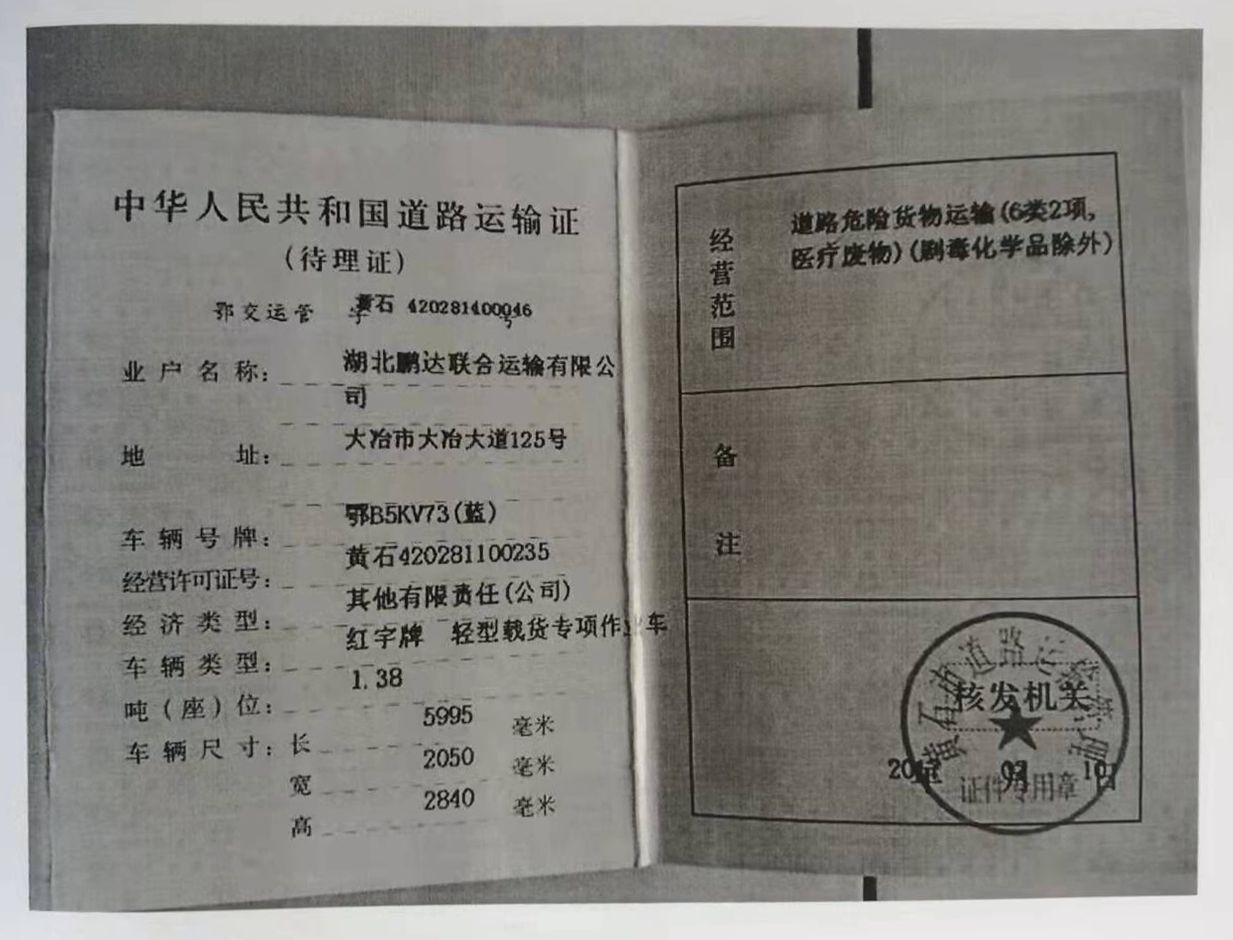 中华人民共和国道路运输证
(待理证)
鄂交运管 字 黄石 420281400046 号
业户名称: 湖北鹏达联合运输有限公
司
地 址: 大冶市大冶大道125号
车辆号牌: 鄂B5KV73(蓝)
经营许可证号: 黄石420281100235
经济类型: 其他有限责任(公司)
车辆类型: 红宇牌 轻型载货专项作业车
吨(座)位: 1.38
车辆尺寸: 长 5995 毫米
宽 2050 毫米
高 2840 毫米
经营范围
道路危险货物运输(6类2项,
医疗废物)(剧毒化学品除外)
备注
黄石市道路运输管理
核发机关
10日
证件专用章